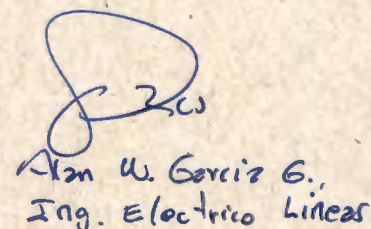 Alan W. Garcia G.,
Ing. Electrico Lineas